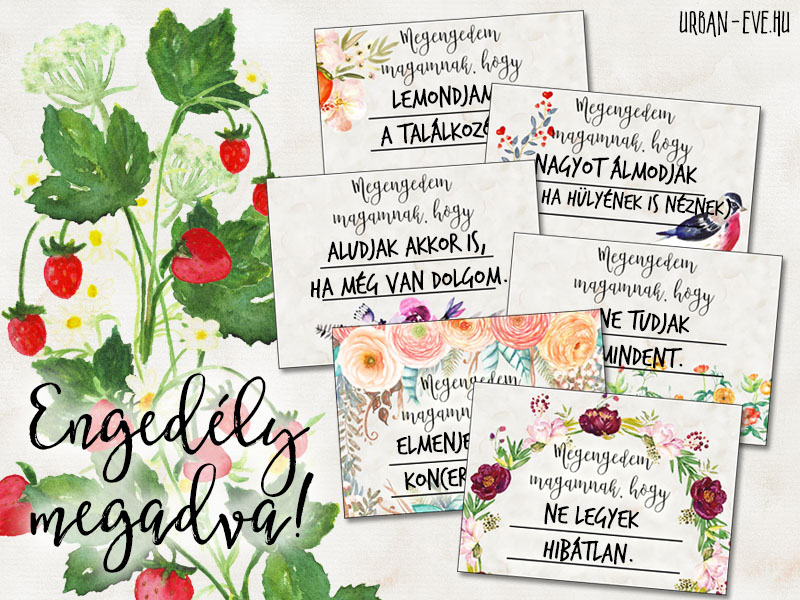 URBAN-EVE.HU
Megengedem
magamnak, hogy
LEMONDJAM
A
Megengedem
magamnak, hogy
NAGYOT ÁLMODJAK
HA HÜLYÉNEK IS NÉZNEK)
Megengedem
magamnak, hogy
ALUDJAK AKKOR IS,
HA MÉG VAN DOLGOM.
Megengedem
magamnak, hogy
NE TUDJAK
MINDENT.
Megengedem
Megengedem
magamnak, hogy
NE LEGYEK
HIBÁTLAN.
Engedély
megadva!